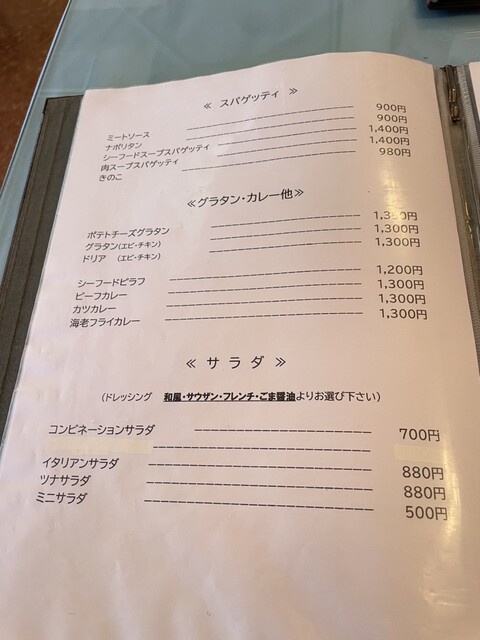 ≪ スパゲッティ ≫
ミートソース ------------------------ 900円
ナポリタン ------------------------ 900円
シーフードスープスパゲッティ ------------------------ 1,400円
肉スープスパゲッティ ------------------------ 1,400円
きのこ ------------------------ 980円
≪グラタン・カレー他≫
ポテトチーズグラタン ------------------------ 1,350円
グラタン(エビ・チキン) ------------------------ 1,300円
ドリア (エビ・チキン) ------------------------ 1,300円
シーフードピラフ ------------------------ 1,200円
ビーフカレー ------------------------ 1,300円
カツカレー ------------------------ 1,300円
海老フライカレー ------------------------ 1,300円
≪ サラダ ≫
(ドレッシング 和風・サウザン・フレンチ・ごま醤油よりお選び下さい)
コンビネーションサラダ ------------------------ 700円
イタリアンサラダ ------------------------ 880円
ツナサラダ ------------------------ 880円
ミニサラダ ------------------------ 500円